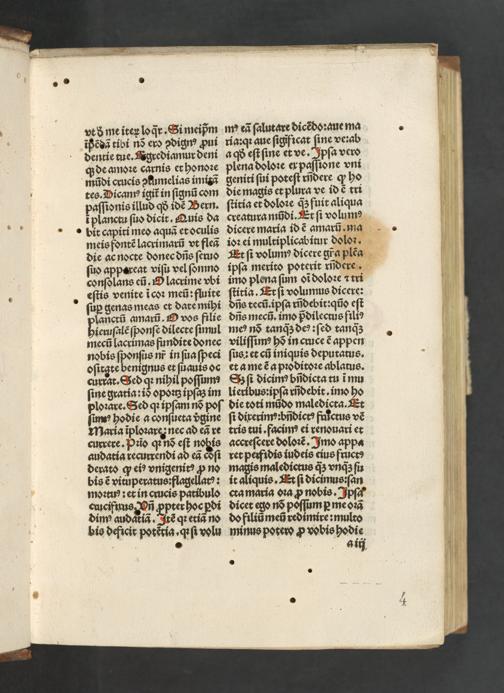 vt ꝺ̄ me iteꝝ loq̄r. Si meip̄m
īpēdā tibi nō ero ꝯdign9 ꝓui
dentie tue. Egrediamur deni
qꝫ de amore carnis et honore
mūdi crucis humelias imitā
tes. Dicam9 igit̄ in signū com
passionis illud qd̄ idē Bern.
ī planctu suo dicit. Quis da
bit capiti meo aquā et oculis
meis fontē lacrimarū vt fleā
die ac nocte donec dn̄s seruo
suo appareat visu vel somno
consolans eū. O lacrime vbi
estis venite ī cor meū: fluite
suꝑ genas meas et date mihi
planctū amarū. O vos filie
hierusalē sponse dilecte simul
mecū lacrimas fundite donec
nobis sponsus nr̄ in sua speci
ositate benignus et suauis oc
currat. Sed qꝛ nihil possum9
sine gratia: iō oportꝫ ipsaꝫ im
plorare. Sed qꝛ ipsam nō pos
sum9 hodie a consueta v̄gine
Maria īplorare: nec ad eā re
currere. Prīo qꝛ nō est nobis
audatia recurrendi ad eā cōsi
derato ꝙ ei9 vnigenit9 ꝓ no
bis ē vituperatus: flagellat9:
mortu9: et in crucis patibulo
crucifixus. Vn̄ ꝓpter hoc ꝑdi
dim9 audatiā. Itē qꝛ etiā no
bis deficit potētia. qꝛ si volu
m9 eā salutare dicēdo: aue ma
ria: qꝛ aue significat sine ve: ab
a qd̄ est sine et ve. Ipsa vero
plena dolore ex passione vni
geniti sui potest rn̄dere ꝙ ho
die magis et plura ve id ē tri
stitia et dolore qꝫ fuit aliqua
creatura mūdi. Et si volum9
dicere maria id ē amarū. ma
ior ei multiplicabitur dolor.
Et si volum9 dicere gr̄a plēa
ipsa merito poterit rn̄dere.
imo plena sum oī dolore ⁊ tri
stitia. Et si volumus dicere:
dn̄s tecū. ipsa rn̄debit: qūo est
dn̄s mecū. imo ꝑdilectus fili9
me9 nō tanqꝫ de9: sed tanqꝫ
vilissim9 hō in cruce ē appen
sus: et cū iniquis deputatus.
et a me ē a proditore ablatus.
Sꝫ si dicim9 bn̄dicta tu ī mu
lieribus: ipsa rn̄debit. imo ho
die toti mūdo maledicta. Et
si dixerim9: bn̄dict9 fruct9 vē
tris tui. facim9 ei renouari et
accrescere dolorē. Imo appa
ret perfidis iudeis eius fruct9
magis maledictus qꝫ vnqꝫ fu
it aliquis. Et si dicimus: san
cta maria ora ꝓ nobis. Ipsa
dicet ego nō possum ꝑ me orā
do filiū meū redimere: multo
minus potero ꝓ vobis hodie
a iiij
4